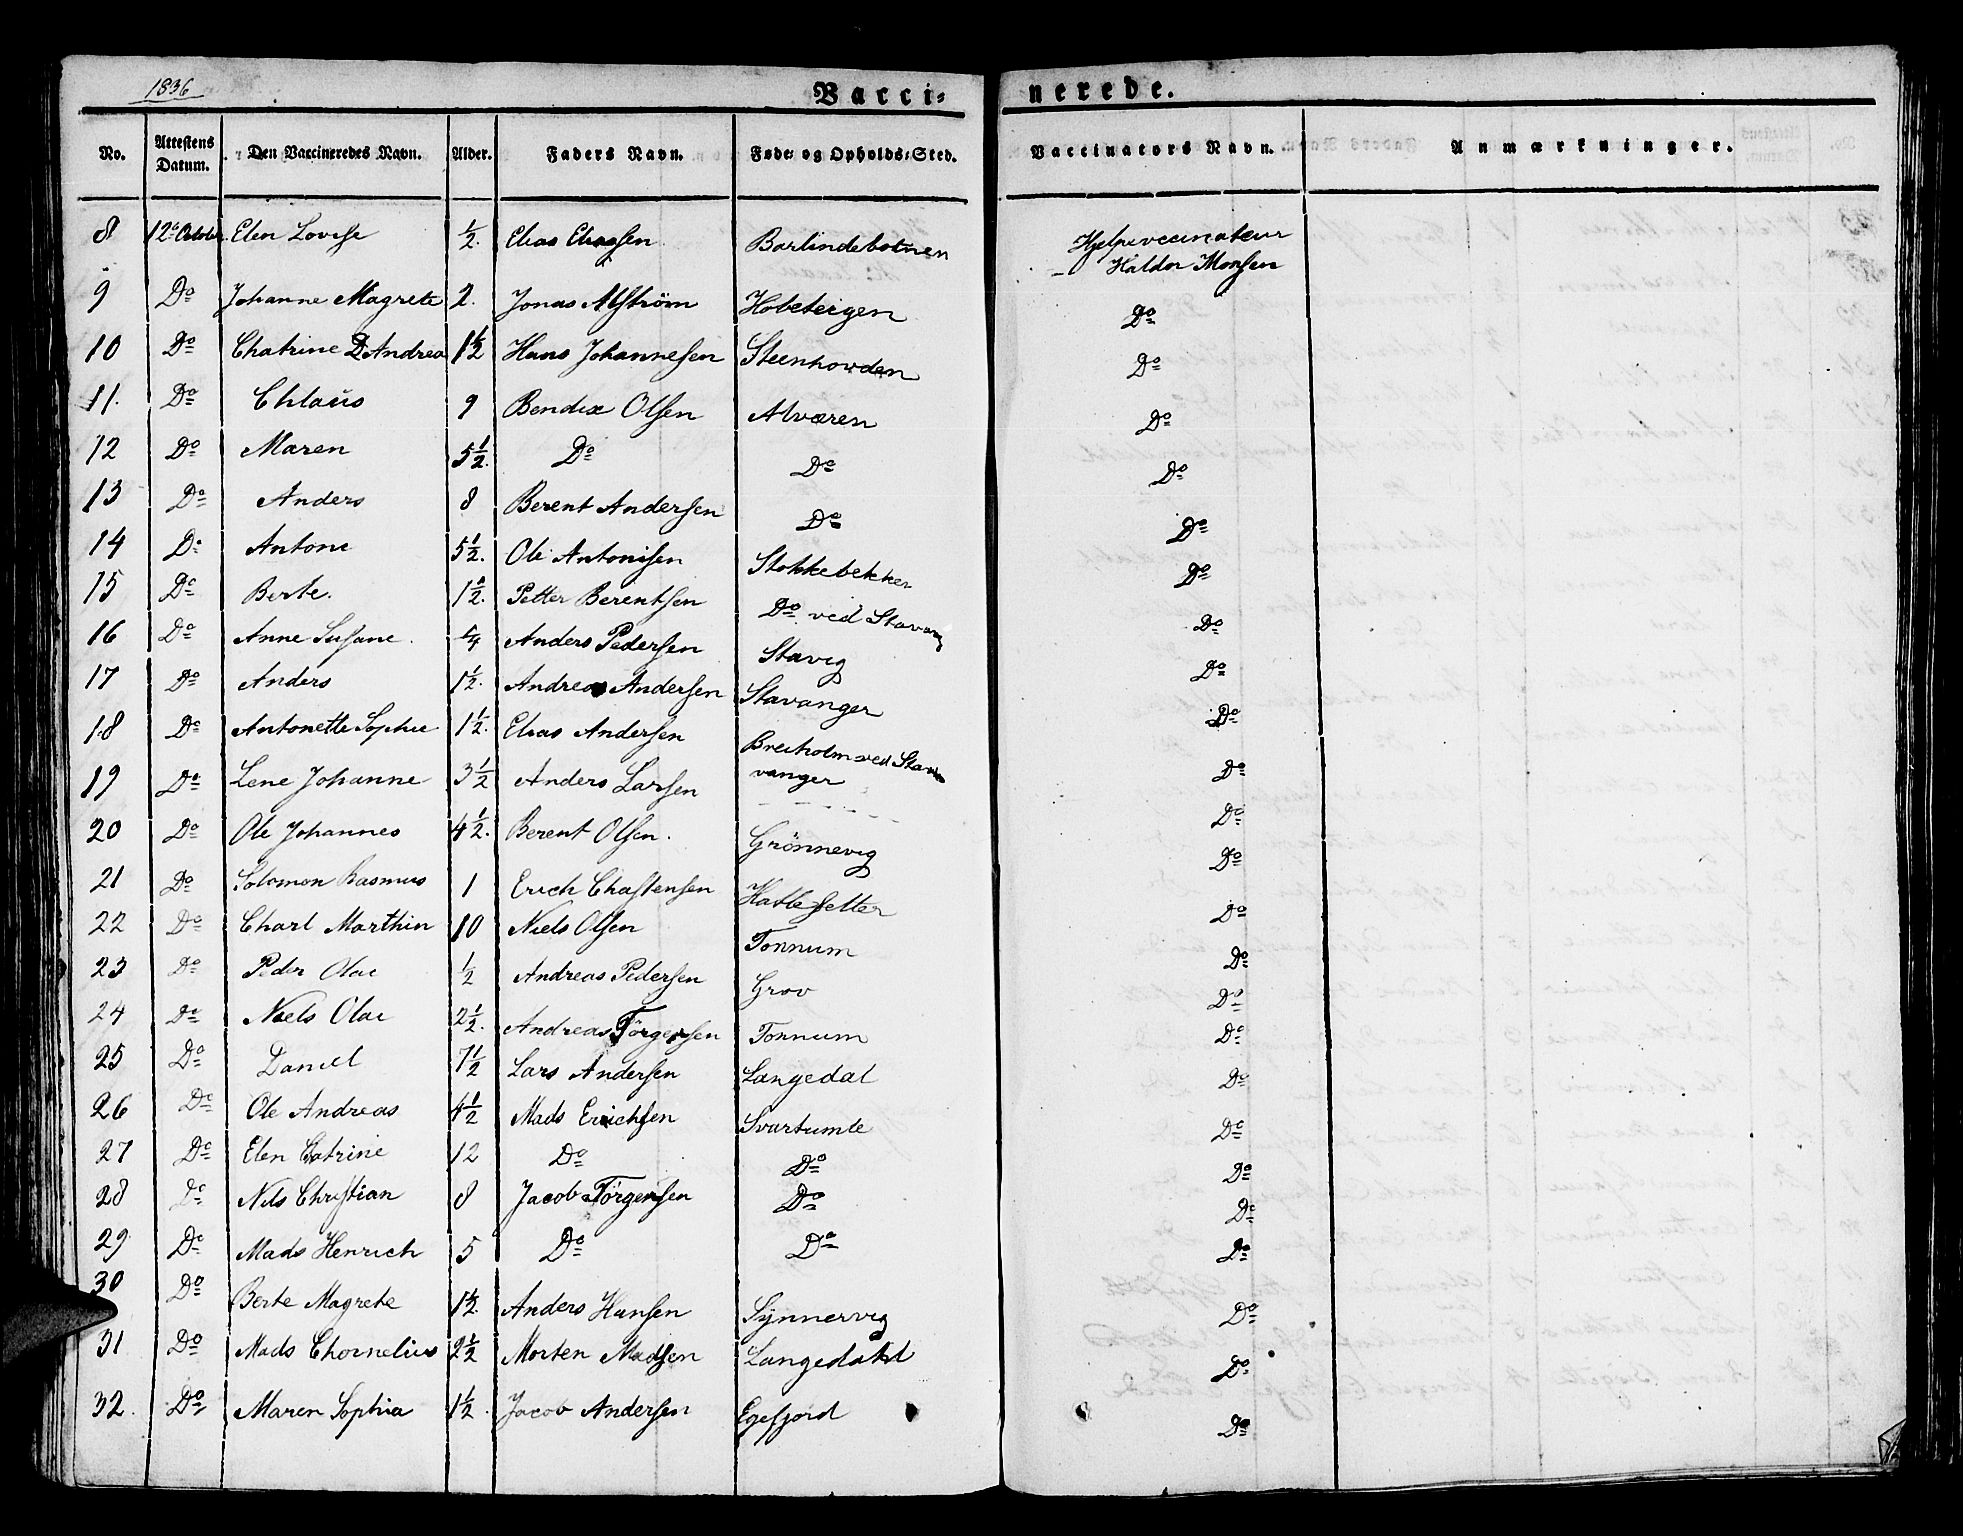 1836
Vacci- nerede.
No. Attestens Datum. Den Vaccineredes Navn. Alder. Faders Navn. Føde- og Opholds-Sted. Vaccinators Navn. Anmærkninger.
8 12te October Elen Lovise ½. Elias Eliassen Barlindebotnen Hjelpevaccinateur
Haldor Monsen
9 Do Johanne Magrete 2. Jonas Alstrøm Hobeteigen Do
10 Do Chatrine D Andrea 1½ Hans Johannesen Steenhovden Do
11. Do Chlaus 9 Bendix Olsen Alværen Do
12 Do Maren 5½. Do Do Do
13 Do Anders 8 Berent Andersen Do Do
14 Do Antone 5½. Ole Antonisen Stokkebekken Do
15 Do Berte. 1½. Petter Berentsen Do ved Stavang Do
16 Do Anne Susane. Anders Pedersen Stavig Do
17 Do Anders 1½. Andreas Andersen Stavanger Do
18 Do Antonette Sophie 1½. Elias Andersen Breiholm ved Sta- Do
19 Do Lene Johanne 3½ Anders Larsen vanger Do
20 Do Ole Johannes 4½. Berent Olsen. Grönnevig Do
21 Do Solomon Rasmus 1 Erich Chastensen Hatlesetter Do
22 Do Charl Marthin 10 Niels Olsen Tonnum Do
23 Do Peder Olai ½ Andreas Pedersen Grov Do
24 Do Niels Olai 2½. Andreas Törgersen Tonnum Do
25 Do Daniel 7½ Lars Andersen Langedal Do
26 Do Ole Andreas 4½ Mads Erichsen Svartumle Do
27 Do Elen Catrine 12 Do Do Do
28 Do Nils Christian 8 Jacob Törgersen Do Do
29 Do Mads Henrich 5 Do Do Do
30 Do Berte Magrete 1½. Anders Hansen Synnervig Do
31 Do Mads Chornelius 2½ Morten Madsen Langedahl Do
32. Do Maren Sophia 1½. Jacob Andersen Egefjord Do